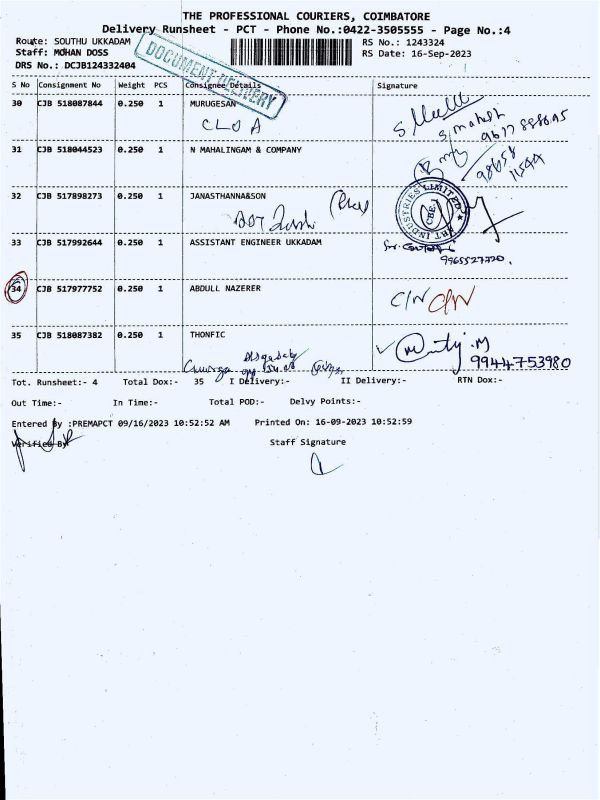 THE PROFESSIONAL COURIERS, COIMBATORE
Delivery Runsheet - PCT - Phone No.:0422-3505555 - Page No.:4
Route: SOUTHU UKKADAM
RS No.: 1243324
Staff: MOHAN DOSS
RS Date: 16-Sep-2023
DRS No.: DCJB124332404
DOCUMENT DELIVERY
S No Consignment No Weight PCS Consignee Details Signature
30 CJB 518087844 0.250 1 MURUGESAN
31 CJB 518044523 0.250 1 N MAHALINGAM & COMPANY
32 CJB 517898273 0.250 1 JANASTHANNA&SON
INDUSTRIES LIMITED
CBE
33 CJB 517992644 0.250 1 ASSISTANT ENGINEER UKKADAM
9965527720.
34 CJB 517977752 0.250 1 ABDULL NAZERER C/N C/N
35 CJB 518087382 0.250 1 THONFIC
9944753980
Tot. Runsheet:- 4 Total Dox:- 35 I Delivery:- II Delivery:- RTN Dox:-
Out Time:- In Time:- Total POD:- Delvy Points:-
Entered By :PREMAPCT 09/16/2023 10:52:52 AM Printed On: 16-09-2023 10:52:59
Verified By
Staff Signature